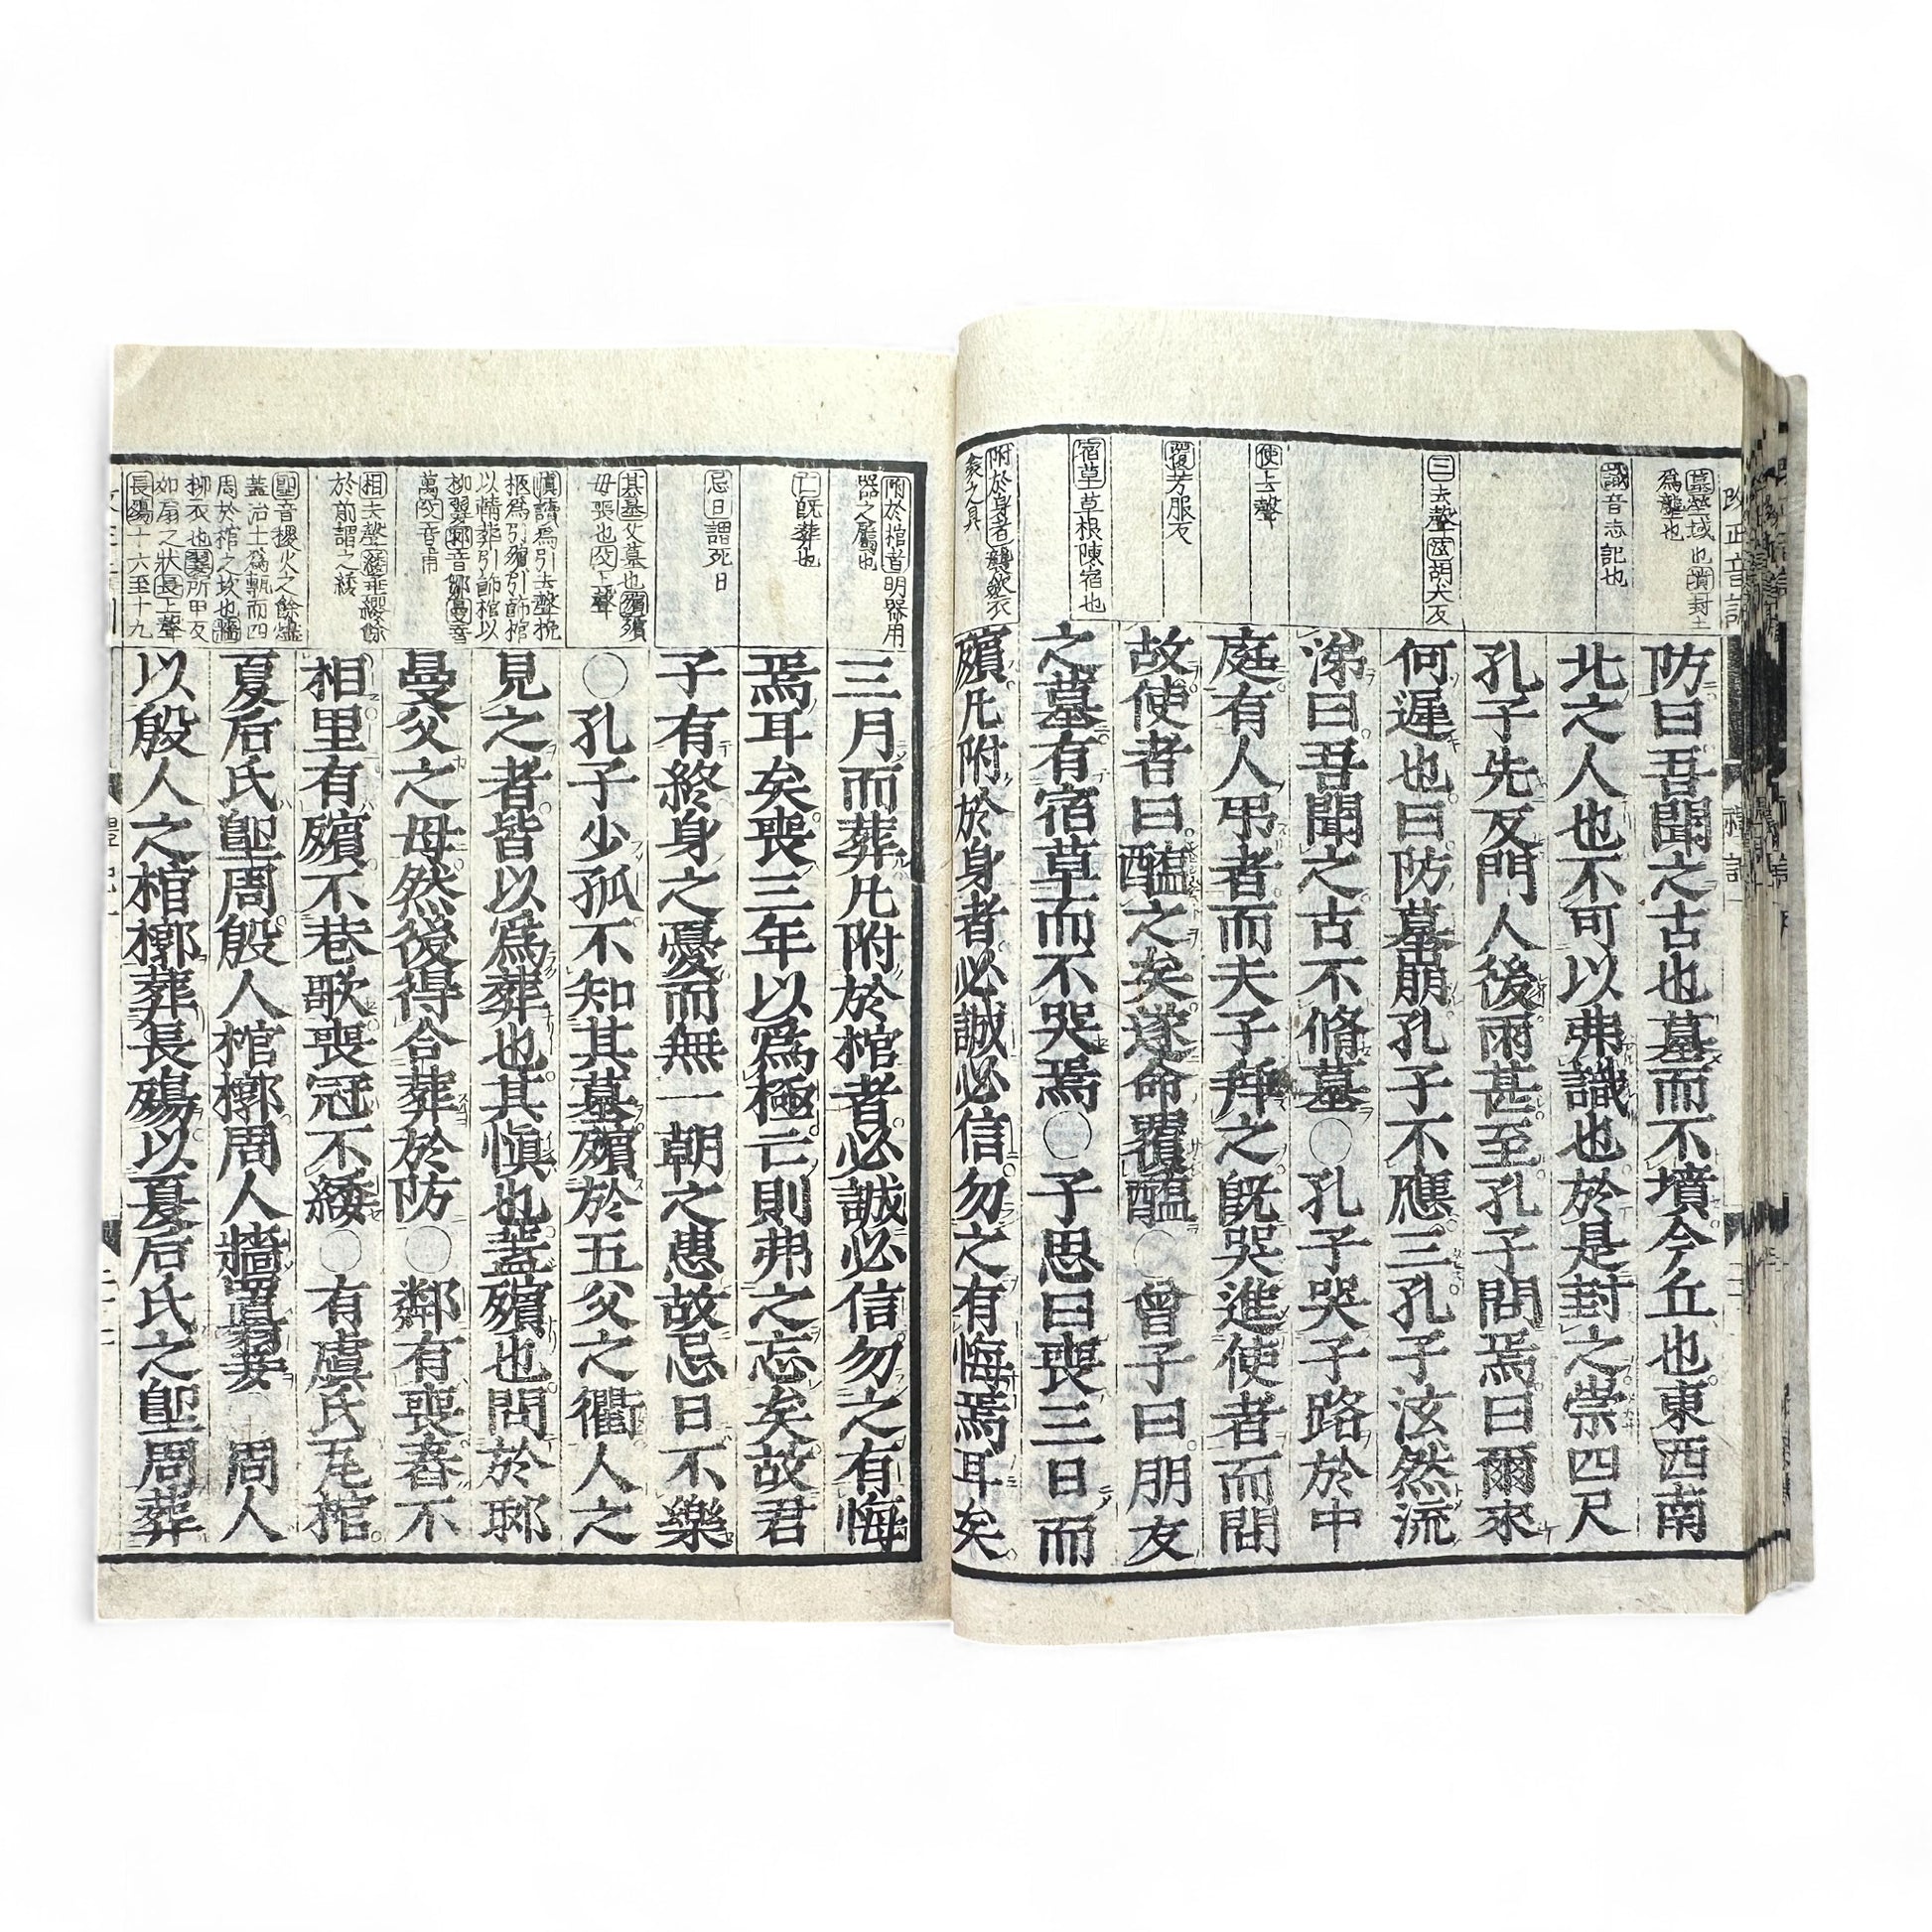 改正音訓
禮記
墓塋域也墳封土
爲壟也
識音志記也
三去聲泫胡犬反
使上聲
覆芳服反
宿草草根陳宿也
附於身者襲斂衣
衾之具
防曰吾聞之古也墓而不墳今丘也東西南
北之人也不可以弗識也於是封之崇四尺
孔子先反門人後雨甚至孔子問焉曰爾來
何遲也曰防墓崩孔子不應三孔子泫然流
涕曰吾聞之古不脩墓○孔子哭子路於中
庭有人弔者而夫子拜之既哭進使者而問
故使者曰醢之矣遂命覆醢○曾子曰朋友
之墓有宿草而不哭焉○子思曰喪三日而
殯凡附於身者必誠必信勿之有悔焉耳矣
附於棺者明器用
器之屬也
亡既葬也
忌日謂死日
其墓父墓也殯殯
母喪也父上聲
慎讀爲引去聲挽
柩爲引殯引飾棺
以輤葬引飾棺以
柳翣郰音鄒曼音
萬父音甫
相去聲緌垂纓餘
於前謂之緌
堲音稷火之餘燼
蓋治土爲甎而四
周於棺之坎也牆
柳衣也翣所甲反
如扇之狀長上聲
長殤十六至十九
三月而葬凡附於棺者必誠必信勿之有悔
焉耳矣喪三年以爲極亡則弗之忘矣故君
子有終身之憂而無一朝之患故忌日不樂
○孔子少孤不知其墓殯於五父之衢人之
見之者皆以爲葬也其慎也蓋殯也問於郰
曼父之母然後得合葬於防○鄰有喪舂不
相里有殯不巷歌喪冠不緌○有虞氏瓦棺
夏后氏堲周殷人棺槨周人牆置翣 周人
以殷人之棺槨葬長殤以夏后氏之堲周葬